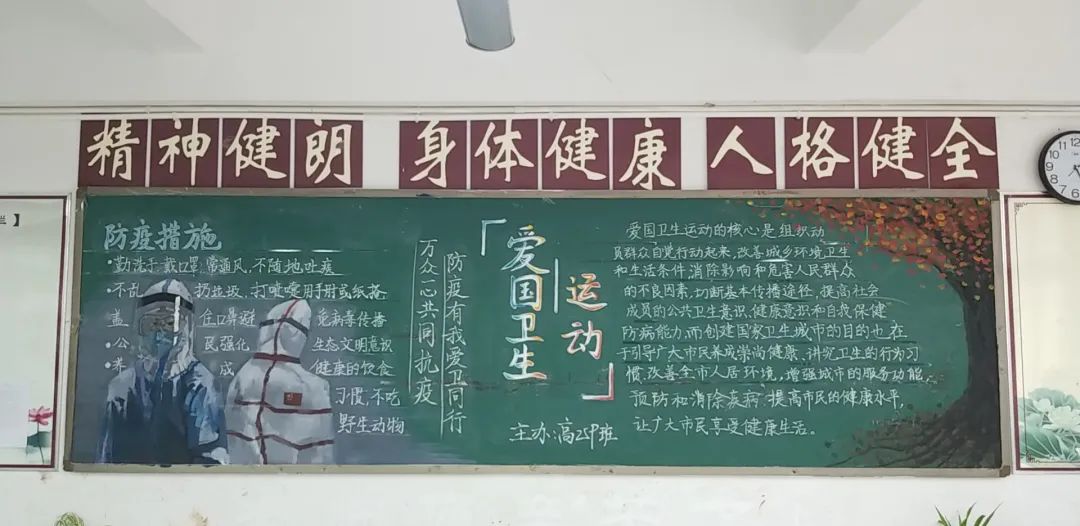 精神健朗 身体健康 人格健全
防疫措施
•勤洗手戴口罩,常通风,不随地吐痰
•不乱扔垃圾,打喷嚏用手肘或纸捂
盖住口鼻避免病毒传播
•公民强化生态文明意识
•养成健康的饮食
习惯,不吃
野生动物
万众一心共同抗疫
防疫有我爱卫同行
「爱国卫生
运动」
主办:高259班
爱国卫生运动的核心是组织动
员群众自觉行动起来,改善城乡环境卫生
和生活条件,消除影响和危害人民群众
的不良因素,切断基本传播途径,提高社会
成员的公共卫生意识、健康意识和自我保健
防病能力,而创建国家卫生城市的目的也在
于引导广大市民养成崇尚健康、讲究卫生的行为习
惯,改善全市人居环境,增强城市的服务功能,
预防和消除疾病,提高市民的健康水平,
让广大市民享受健康生活。
栏】
10
11
12